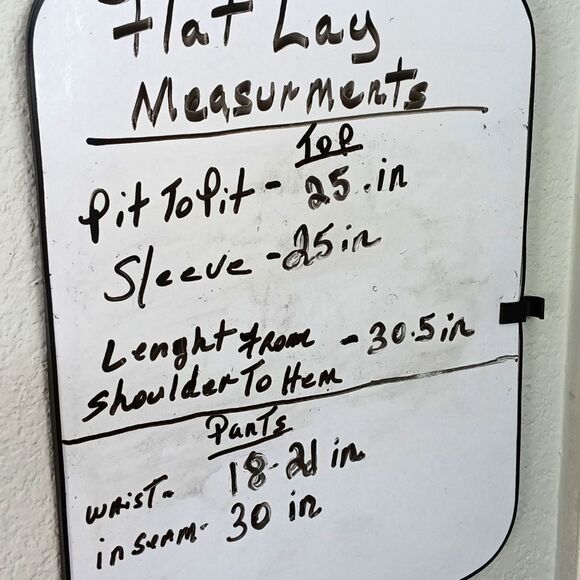 Flat Lay
Measurments
Top
Pit To Pit - 25.in
Sleeve - 25 in
Lenght from - 30.5 in
shoulder To Hem
Pants
WAIST- 18-21 in
inseam- 30 in